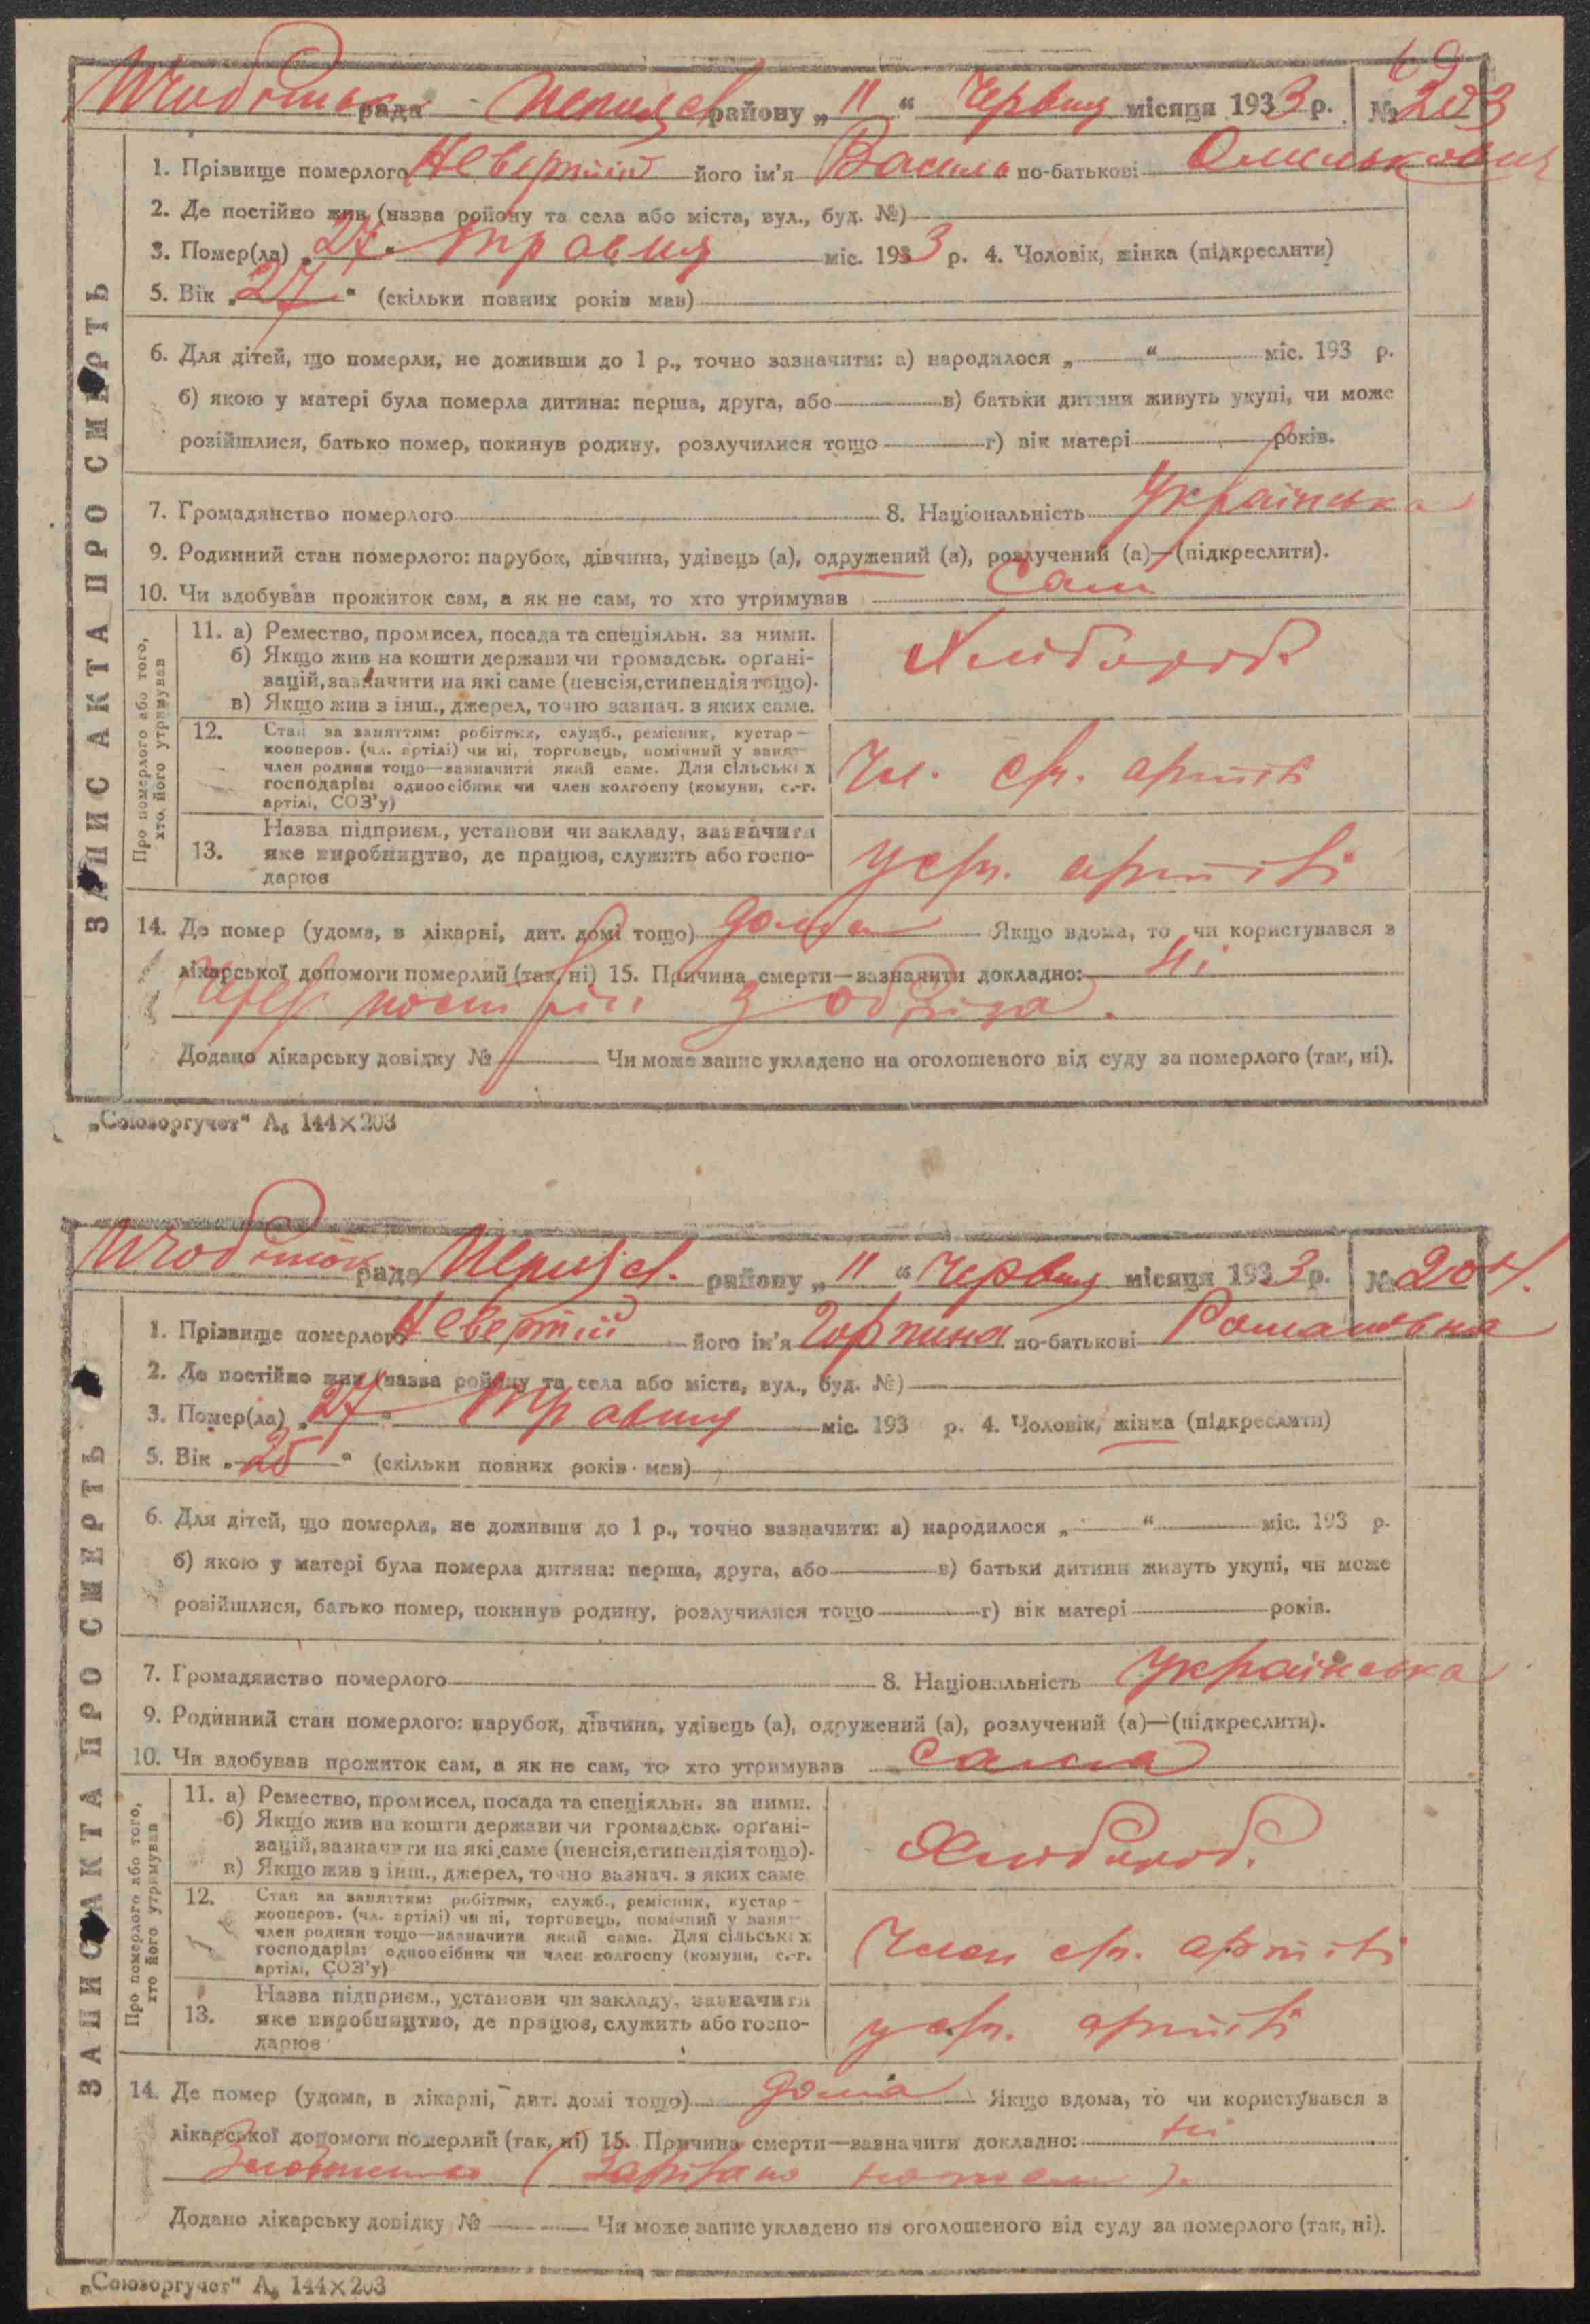 рада району „ 11 “ Червня місяця 1933 р. № 203
69
1. Прізвище померлого Невертій його ім'я Василь по-батькові Омелькович
2. Де постійно жив (назва ройону та села або міста, вул., буд. №)
3. Помер(ла) „27“ травня міс. 1933 р. 4. Чоловік, жінка (підкреслити)
5. Вік „27“ (скільки повних років мав)
6. Для дітей, що померли, не доживши до 1 р., точно зазначити: а) народилося „ “ міс. 193 р.
б) якою у матері була померла дитина: перша, друга, або в) батьки дитини живуть укупі, чи може
розійшлися, батько помер, покинув родину, розлучилися тощо г) вік матері років.
7. Громадянство померлого 8. Національність Українська
9. Родинний стан померлого: парубок, дівчина, удівець (а), одружений (а), розлучений (а)—(підкреслити).
10. Чи здобував прожиток сам, а як не сам, то хто утримував Сам
11. а) Ремество, промисел, посада та спеціяльн. за ними.
б) Якщо жив на кошти держави чи громадськ. орґані-
зацій, зазначити на які саме (пенсія, стипендія тощо).
в) Якщо жив з інш., джерел, точно зазнач. з яких саме.
Хлібороб
12. Стан за заняттям: робітник, служб., ремісник, кустар—
кооперов. (чл. артілі) чи ні, торговець, помічний у занят
член родини тощо—зазначити який саме. Для сільських
господарів: одноосібник чи член колгоспу (комуни, с.-г.
артілі, СОЗ'у)
Чл. с/г. артілі
13. Назва підприєм., установи чи закладу, зазначити
яке виробництво, де працює, служить або госпо-
дарює
у с/г. артілі
Про померлого або того,
хто його утримував
ЗАПИС АКТА ПРО СМЕРТЬ
14. Де помер (удома, в лікарні, дит. домі тощо) дома Якщо вдома, то чи користувався з
лікарської допомоги померлий (так, ні) 15. Причина смерти—зазначити докладно: ні
Через постріл з обріза.
Додано лікарську довідку № Чи може запис укладено на оголошеного від суду за померлого (так, ні).
„Союзоргучет“ А₅ 144×203
рада району „ 11 “ Червня місяця 1933 р. № 204.
1. Прізвище померлого Невертій його ім'я Горпина по-батькові Романовна
2. Де постійно жив (назва ройону та села або міста, вул., буд. №)
3. Помер(ла) „27“ травня міс. 193 р. 4. Чоловік, жінка (підкреслити)
5. Вік „25“ (скільки повних років мав)
6. Для дітей, що померли, не доживши до 1 р., точно зазначити: а) народилося „ “ міс. 193 р.
б) якою у матері була померла дитина: перша, друга, або в) батьки дитини живуть укупі, чи може
розійшлися, батько помер, покинув родину, розлучилися тощо г) вік матері років.
7. Громадянство померлого 8. Національність Українська
9. Родинний стан померлого: парубок, дівчина, удівець (а), одружений (а), розлучений (а)—(підкреслити).
10. Чи здобував прожиток сам, а як не сам, то хто утримував сама
11. а) Ремество, промисел, посада та спеціяльн. за ними.
б) Якщо жив на кошти держави чи громадськ. орґані-
зацій, зазначити на які саме (пенсія, стипендія тощо).
в) Якщо жив з інш., джерел, точно зазнач. з яких саме
Хлібороб.
12. Стан за заняттям: робітник, служб., ремісник, кустар—
кооперов. (чл. артілі) чи ні, торговець, помічний у занят
член родини тощо—зазначити який саме. Для сільських
господарів: одноосібник чи член колгоспу (комуни, с.-г.
артілі, СОЗ'у)
Член с/г. артілі
13. Назва підприєм., установи чи закладу, зазначити
яке виробництво, де працює, служить або госпо-
дарює
у с/г. артілі
Про померлого або того,
хто його утримував
ЗАПИС АКТА ПРО СМЕРТЬ
14. Де помер (удома, в лікарні, дит. домі тощо) дома Якщо вдома, то чи користувався з
лікарської допомоги померлий (так, ні) 15. Причина смерти—зазначити докладно: ні
(Зарізано ножем).
Додано лікарську довідку № Чи може запис укладено на оголошеного від суду за померлого (так, ні).
„Союзоргучет“ А₅ 144×203